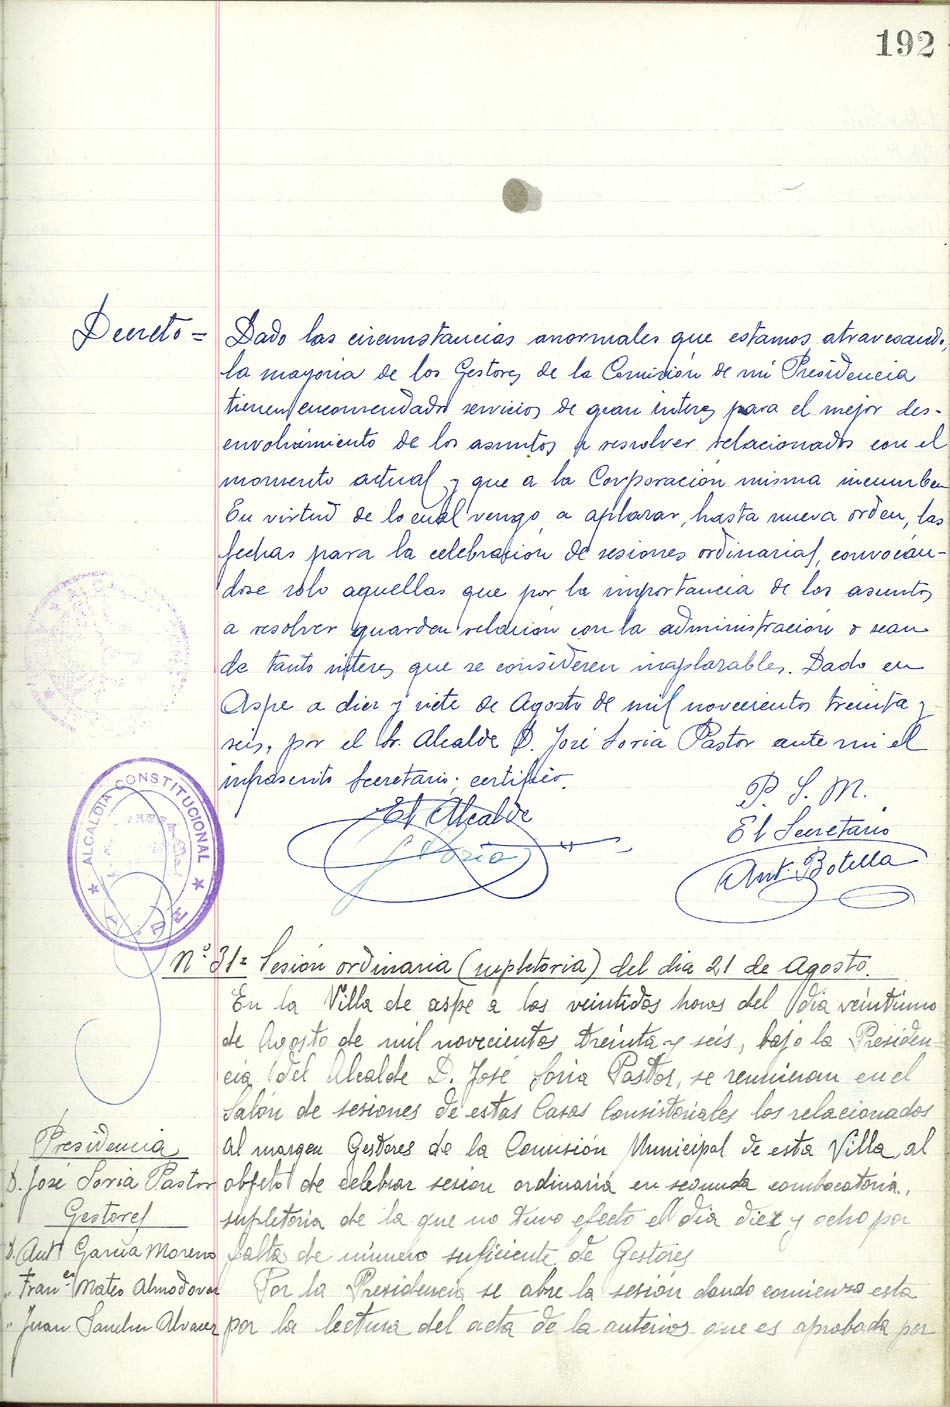 192
Decreto = Dado las circunstancias anormales que estamos atravesando,
la mayoria de los Gestores de la Comisión de mi Presidencia
tienen encomendados servicios de gran interes para el mejor des-
envolvimiento de los asuntos a resolver relacionados con el
momento actual y que a la Corporación misma incumben
En virtud de lo cual vengo a aplazar, hasta nueva orden, las
fechas para la celebración de sesiones ordinarias, convocán-
dose solo aquellas que por la importancia de los asuntos
a resolver guarden relación con la administración o sean
de tanto interes que se consideren inaplazables. Dado en
Aspe a diez y siete de Agosto de mil novecientos treinta y
seis, por el Sr. Alcalde D. José Soria Pastor ante mi el
infrascrito Secretario; certifico.
El Alcalde
J Soria
P. S. M.
El Secretario
Ant. Botella
ALCALDIA CONSTITUCIONAL
Nº 31= Sesión ordinaria (supletoria) del dia 21 de Agosto.
En la Villa de aspe a las veintidos horas del dia veintiuno
de Agosto de mil novecientos treinta y seis, bajo la Presiden-
cia del Alcalde D. José Soria Pastor, se reunieron en el
Salón de sesiones de estas Casas Consistoriales los relacionados
al margen Gestores de la Comisión Municipal de esta Villa, al
objeto de celebrar sesion ordinaria en segunda combocatoria,
supletoria de la que no tuvo efecto el dia diez y ocho por
falta de número suficiente de Gestores
Por la Presidencia se abre la sesión dando comienzo esta
por la lectura del acta de la anterior que es aprobada por
Presidencia
D. José Soria Pastor
Gestores
D. Antº Garcia Moreno
" Franco Mateo Almodovar
" Juan Sanchez Alvarez